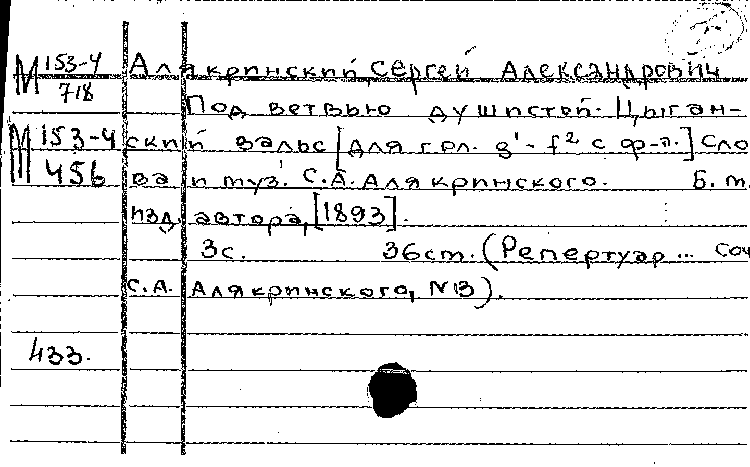 М 153-4
718
Алякринский, Сергей Александрович
Под ветвью душистой. Цыган-
М 153-4
456
ский вальс [для грл. g'-f² с ф-п.] Сло
ва и муз. С.А. Алякринского. Б.м.
изд. автора, [1893].
3с. 36см. (Репертуар... соч
С.А. Алякринского, №13).
433.